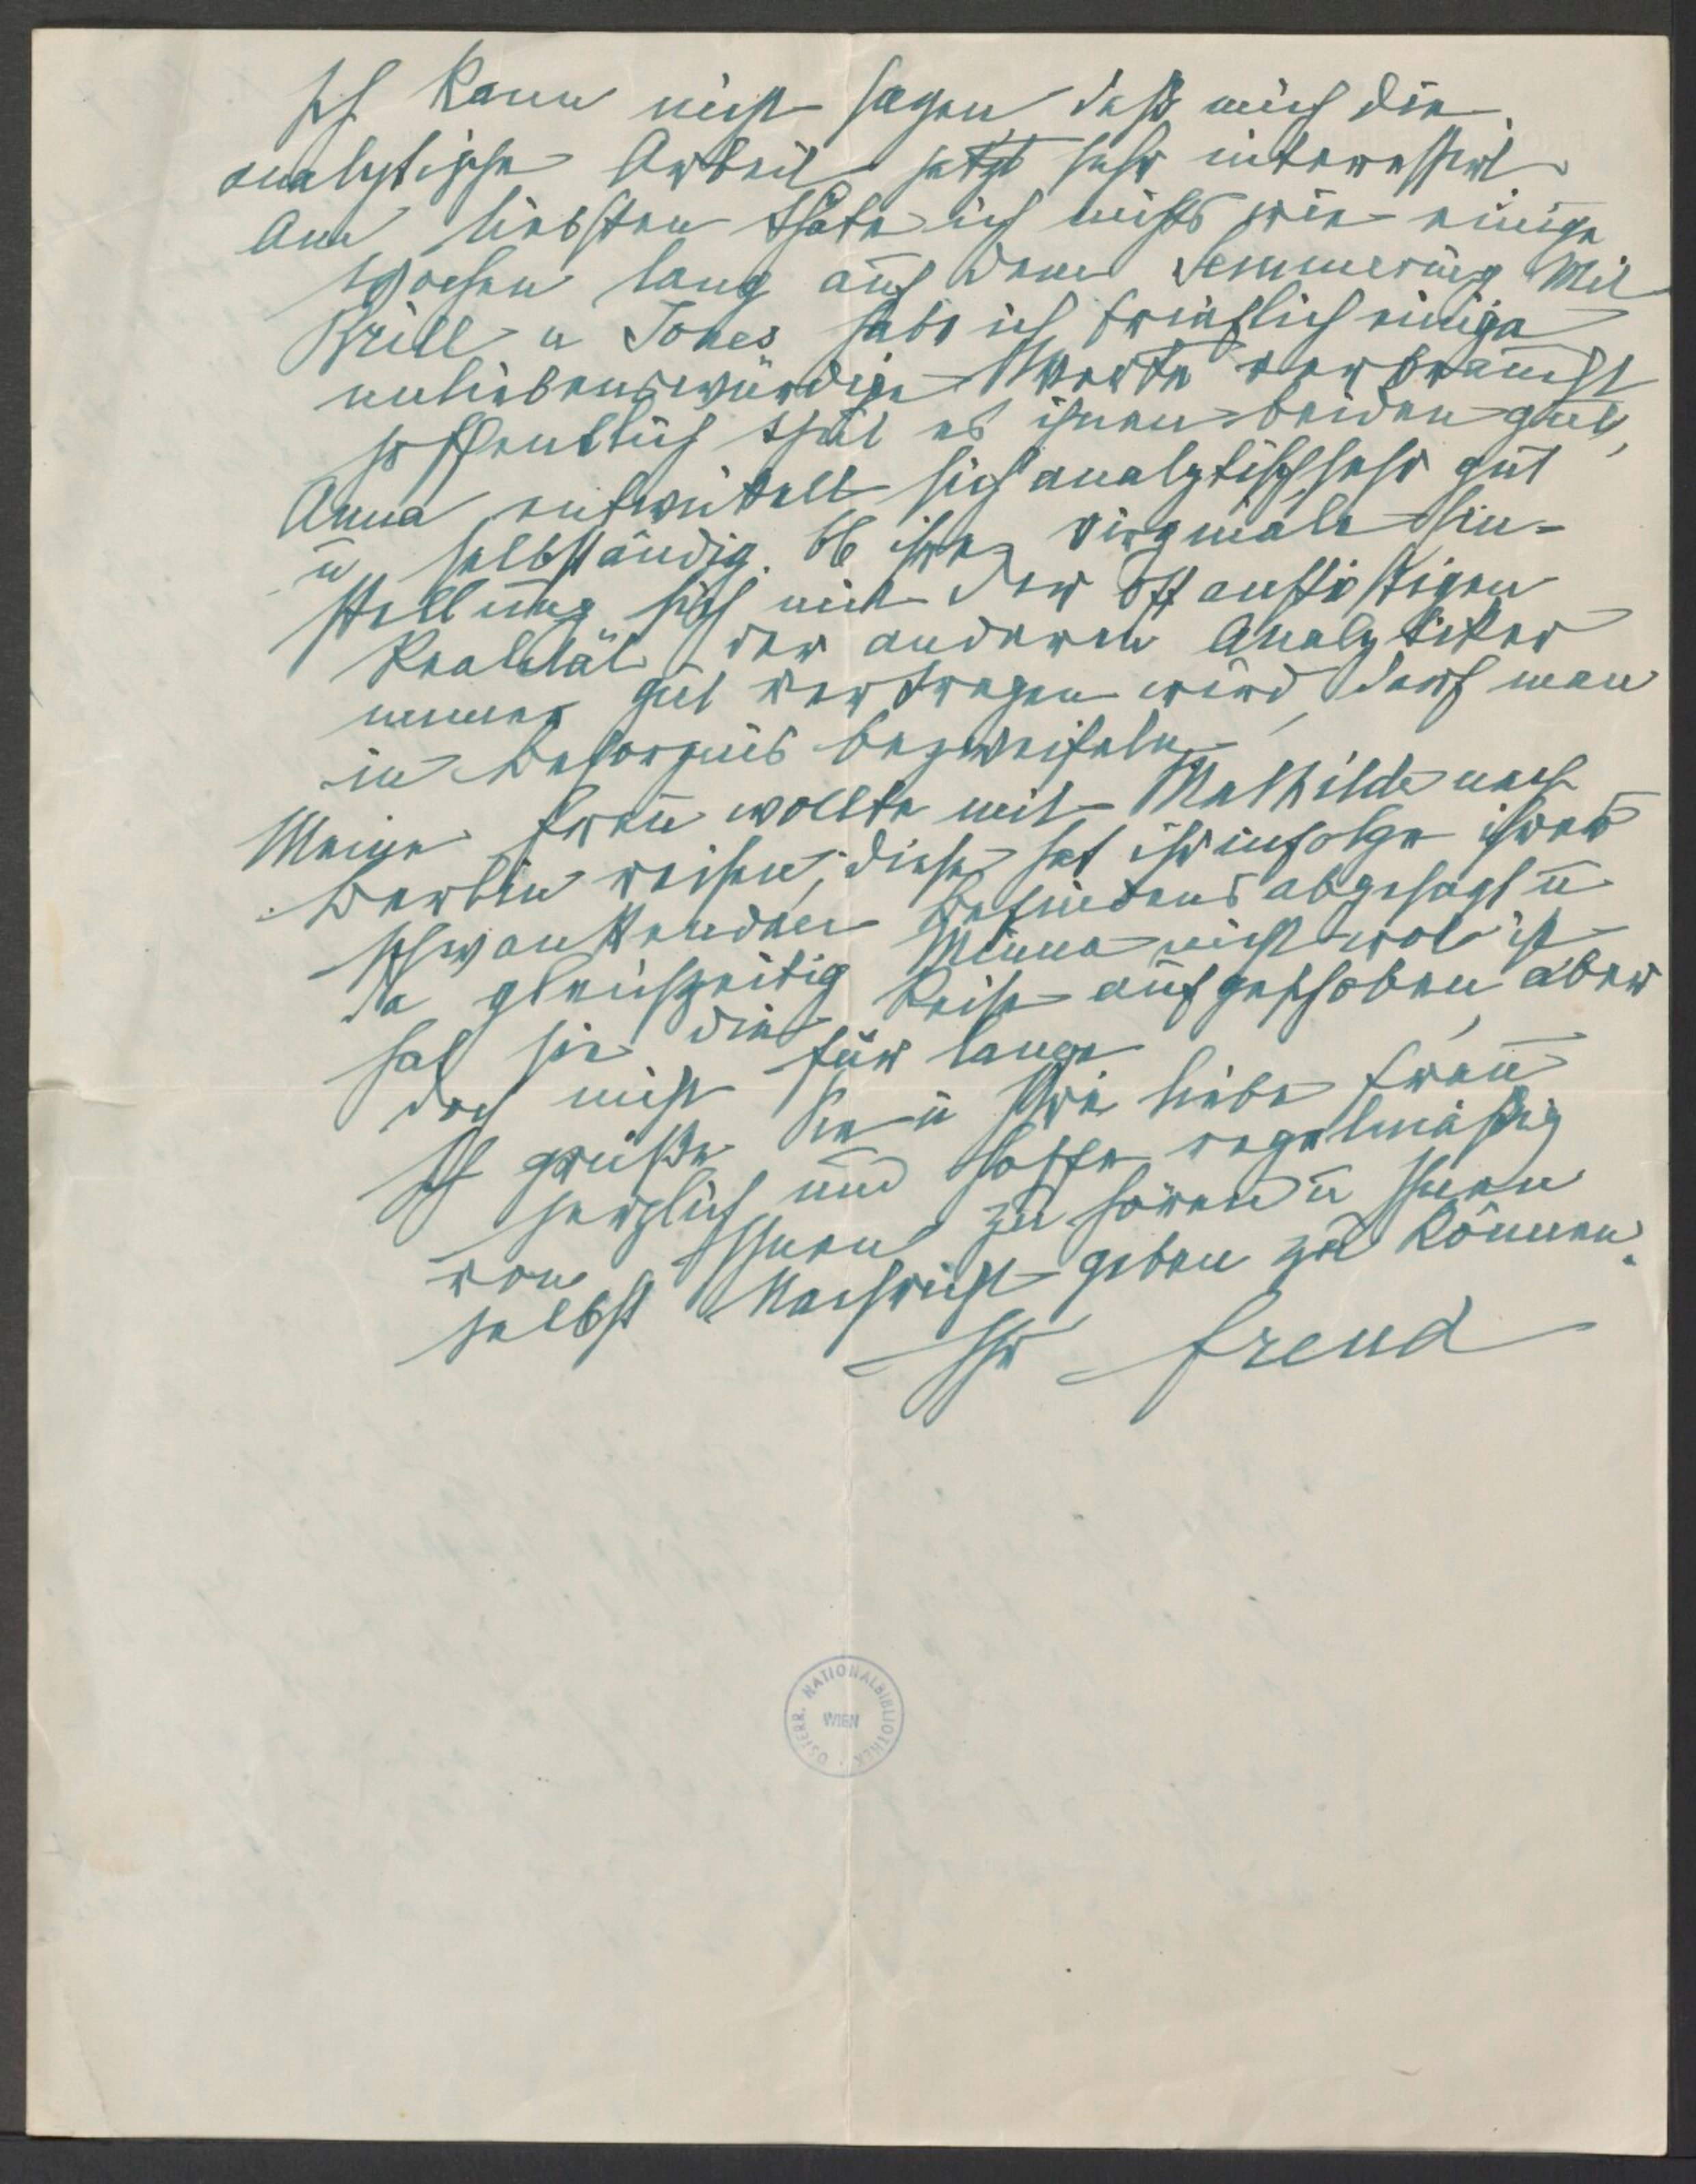 Ich kann nicht sagen daß mich die
analytische Arbeit jetzt sehr interessirt
Am liebsten thäte ich nichts wie einige
Wochen lang auf dem Semmering Mit
Brill u Jones habe ich brieflich einige
unliebenswürdige Worte
hoffentlich thut es ihnen beiden gut,
Anna entwickelt sich analytisch sehr gut
u selbständig. Ob ihre virginale Ein-
stellung sich mit der oft anstößigen
Realität der anderen Analytiker
immer gut vertragen wird, darf man
in Besorgnis bezweifeln
Meine Frau wollte mit Mathilde nach
Berlin reisen, diese hat ihr infolge ihres
schwankenden Befindens abgesagt u
da gleichzeitig Minna nicht wol ist
hat sie die Reise aufgeschoben, aber
doch nicht für lange
Ich grüße Sie u Ihre liebe Frau
herzlich und hoffe regelmäßig
von Ihnen zu hören u Ihnen
selbst Nachricht geben zu können.
Ihr Freud
ÖSTERR. NATIONALBIBLIOTHEK
WIEN